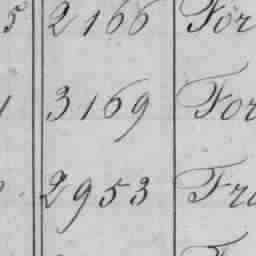 5 2166 For
3169 For
2953 Fra